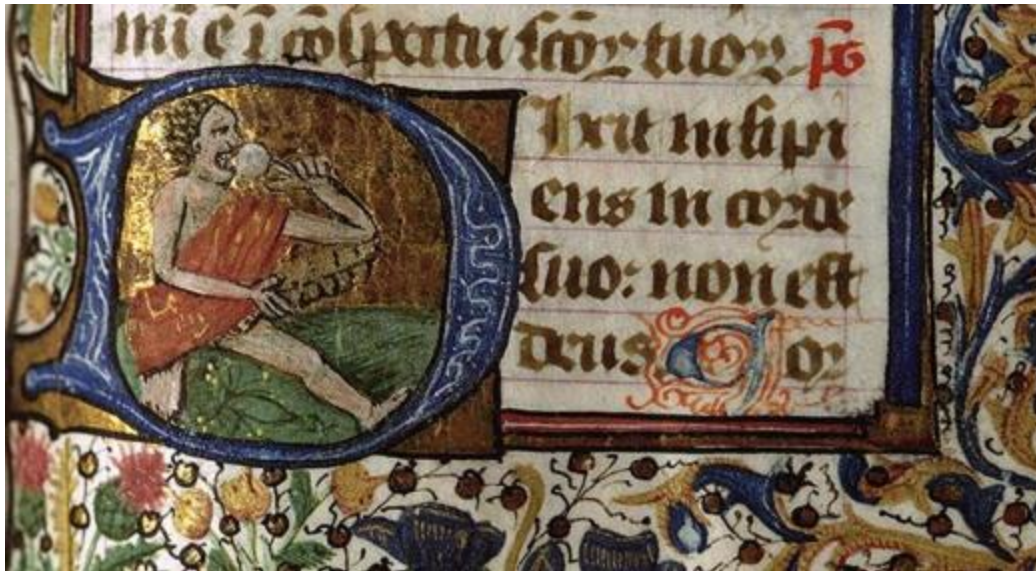 nū ē ī cōspectu scōꝝ tuoꝝ. ps̄
DIxit insipi
ens in corde
suo: non est
deus Cor